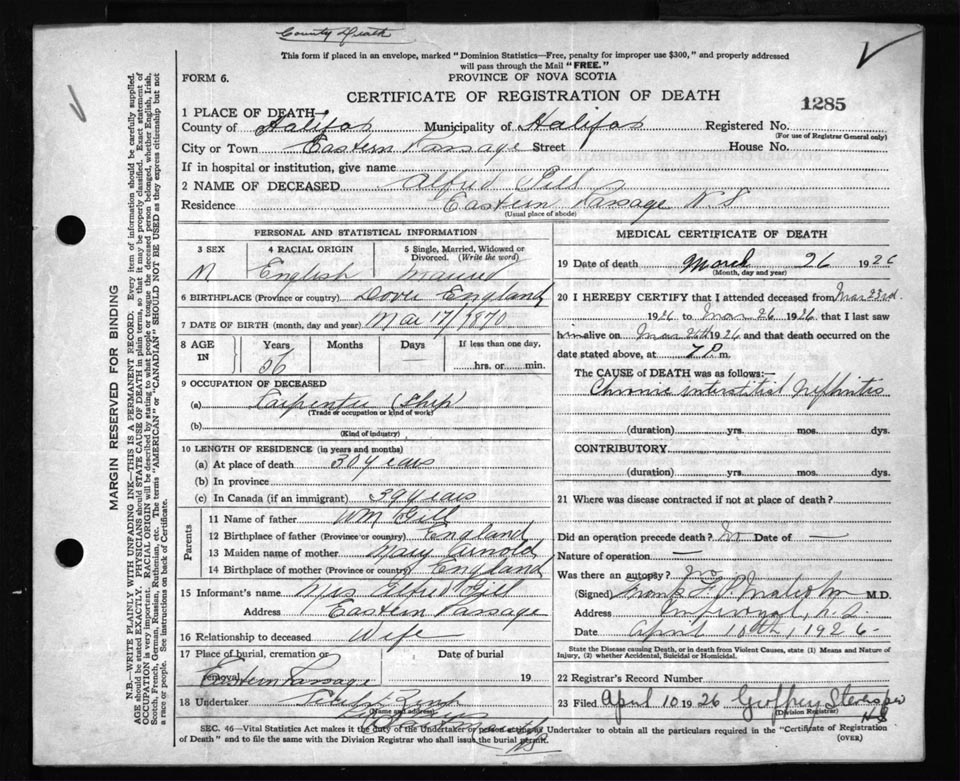 County Death
This form if placed in an envelope, marked "Dominion Statistics—Free, penalty for improper use $300," and properly addressed
will pass through the Mail "FREE."
FORM 6.
PROVINCE OF NOVA SCOTIA
CERTIFICATE OF REGISTRATION OF DEATH
1285
1 PLACE OF DEATH—
County of Halifax Municipality of Halifax Registered No.
(For use of Registrar General only)
City or Town Eastern Passage Street House No.
If in hospital or institution, give name
2 NAME OF DECEASED Alfred Gill
Residence Eastern Passage N S
(Usual place of abode)
PERSONAL AND STATISTICAL INFORMATION
3 SEX 4 RACIAL ORIGIN 5 Single, Married, Widowed or Divorced. (Write the word)
M English Married
6 BIRTHPLACE (Province or country) Dover England
7 DATE OF BIRTH (month, day and year) Mar 17/1870
8 AGE IN Years Months Days If less than one day,
56 — hrs. or min.
9 OCCUPATION OF DECEASED
(a) Carpenter (Ship)
(Trade or occupation or kind of work)
(b)
(Kind of industry)
10 LENGTH OF RESIDENCE (in years and months)
(a) At place of death 30 years
(b) In province
(c) In Canada (if an immigrant) 39 years
Parents
11 Name of father Wm Gill
12 Birthplace of father (Province or country) England
13 Maiden name of mother Mary Arnold
14 Birthplace of mother (Province or country) England
15 Informant's name Mrs Alfred Gill
Address Eastern Passage
16 Relationship to deceased Wife
17 Place of burial, cremation or removal Date of burial
Eastern Passage 19
18 Undertaker
(Name and address)
Dartmouth
NS
MEDICAL CERTIFICATE OF DEATH
19 Date of death March 26 1926
(Month, day and year)
20 I HEREBY CERTIFY that I attended deceased from Mar 23rd
1926 to Mar 26 1926 that I last saw
him alive on Mar 1926 and that death occurred on the
date stated above, at 7 P. m.
The CAUSE OF DEATH was as follows:—
Chronic interstitial Nephritis
(duration) yrs. mos. dys.
CONTRIBUTORY.
(duration) yrs. mos. dys.
21 Where was disease contracted if not at place of death?
Did an operation precede death? No Date of —
Nature of operation —
Was there an autopsy? No
(Signed) Malcolm M.D.
Address Imperoyal, N.S.
Date April 10th, 1926.
State the Disease causing Death, or in Death from Violent Causes, state (1) Means and Nature of
Injury, (2) whether Accidental, Suicidal or Homicidal.
22 Registrar's Record Number
23 Filed April 10 1926 Geoffrey
(Division Registrar)
SEC. 46—Vital Statistics Act makes it the duty of the Undertaker or person acting as Undertaker to obtain all the particulars required in the "Certificate of Registration
of Death" and to file the same with the Division Registrar who shall issue the burial permit.
(OVER)
MARGIN RESERVED FOR BINDING
N.B.—WRITE PLAINLY WITH UNFADING INK—THIS IS A PERMANENT RECORD. Every item of information should be carefully supplied.
AGE should be stated EXACTLY. PHYSICIANS should STATE CAUSE OF DEATH in plain terms, so that it may be properly classified. Exact statement of
OCCUPATION is very important. RACIAL ORIGIN will be described by stating to what people or tongue the deceased person belonged, whether English, Irish,
Scotch, French, German, Russian, Ruthenian, etc. The terms "AMERICAN" or "CANADIAN" SHOULD NOT BE USED as they express citizenship but not
a race or people. See instructions on back of Certificate.